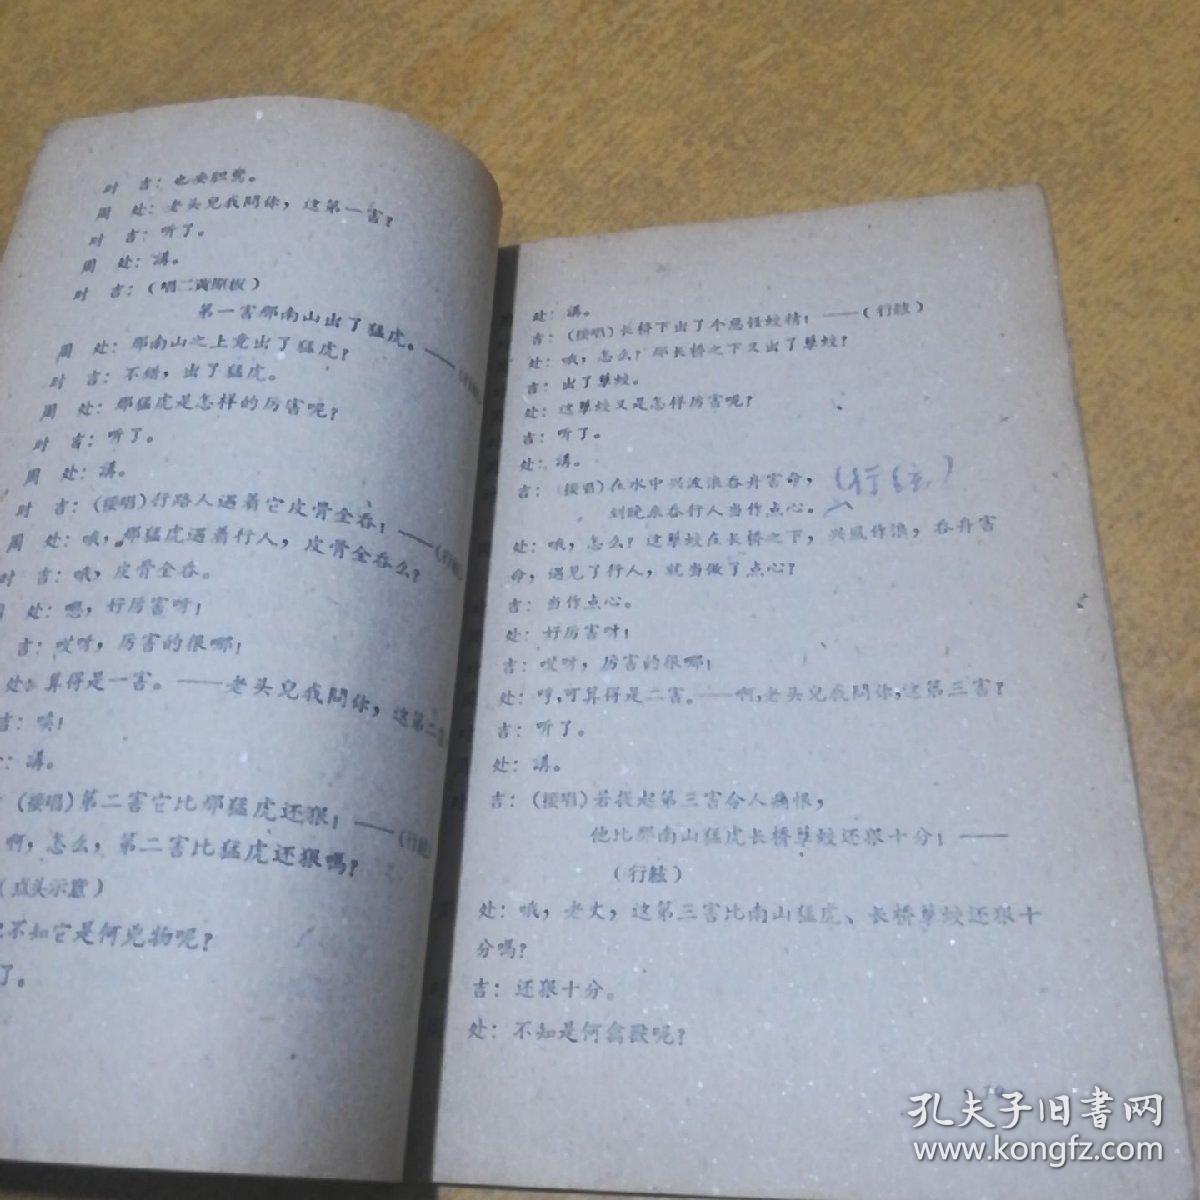 时 吉：也要胆惊。
周 处：老头兒我問你，这第一害？
时 吉：听了。
周 处：講。
时 吉：（唱二黄原板）
第一害那南山出了猛虎。——
周 处：那南山之上竟出了猛虎？
时 吉：不错，出了猛虎。
周 处：那猛虎是怎样的厉害呢？
时 吉：听了。
周 处：講。
时 吉：（接唱）行路人遇着它皮骨全吞；——（行
周 处：哦，那猛虎遇着行人，皮骨全吞么？
时 吉：哦，皮骨全吞。
处：嗯，好厉害呀！
吉：哎呀，厉害的很哪！
处：算得是一害。——老头兒我問你，这第二害
吉：唉！
：講。
（接唱）第二害它比那猛虎还狠；——（行絃）
啊，怎么，第二害比猛虎还狠嗎？
（点头示意）
不知它是何兇物呢？
了。
处：講。
吉：（接唱）长桥下出了个恶怪蛟精；——（行絃）
处：哦，怎么？那长桥之下又出了孽蛟？
吉：出了孽蛟。
处：这孽蛟又是怎样厉害呢？
吉：听了。
处：講。
吉：（接唱）在水中兴波浪吞舟害命，（行弦）
到晚来吞行人当作点心。
处：哦，怎么？这孽蛟在长桥之下，兴風作浪，吞舟害
命，遇见了行人，就当做了点心？
吉：当作点心。
处：好厉害呀！
吉：哎呀，厉害的很哪！
处：哼，可算得是二害。——啊，老头兒我問你，这第三害？
吉：听了。
处：講。
吉：（接唱）若提起第三害令人痛恨，
他比那南山猛虎长桥孽蛟还狠十分；——
（行絃）
处：哦，老丈，这第三害比南山猛虎、长桥孽蛟还狠十
分嗎？
吉：还狠十分。
处：不知是何禽獸呢？
19
孔夫子旧書网
www.kongfz.com